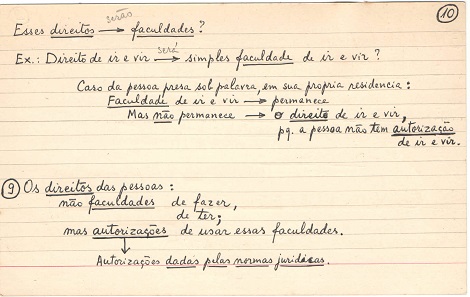 10
serão
Esses direitos → faculdades?
será
Ex.: Direito de ir e vir → simples faculdade de ir e vir?
Caso da pessoa presa sob palavra, em sua propria residencia:
Faculdade de ir e vir → permanece
Mas não permanece → o direito de ir e vir,
pq. a pessoa não tem autorização
de ir e vir.
9 Os direitos das pessoas:
não faculdades de fazer,
de ter;
mas autorizações de usar essas faculdades.
↓
Autorizações dadas pelas normas jurídicas.